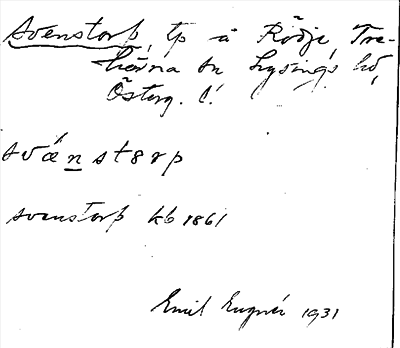 Svenstorp, tp å Rödje, Tre-
hörna sn Lysings hd,
Österg. l.
svänstorp
svenstorp kb 1861
Emil 1931